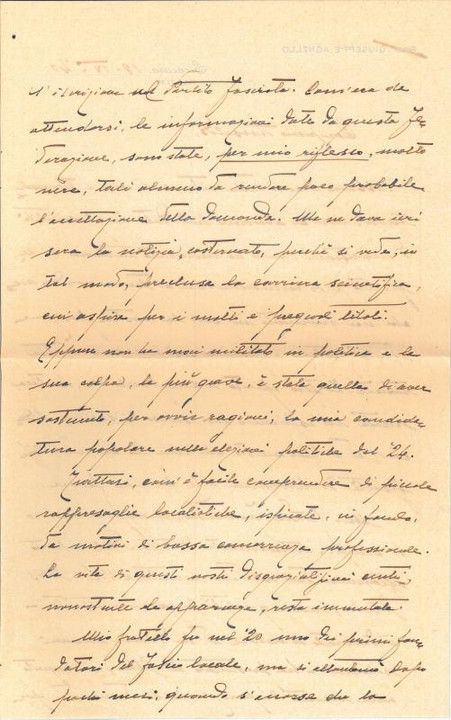 l'iscrizione nel Partito Fascista. Com'era da
attendersi, le informazioni date da questa Fe-
derazione, sono state, per mio riflesso, molto
nere, tali almeno da rendere poco probabile
l'accettazione della domanda. Me ne dava ieri
sera la notizia, costernato, perchè si vede, in
tal modo, preclusa la carriera scientifica,
cui aspira per i molti e pregevoli titoli.
Eppure non ha mai militato in politica e la
sua colpa, la più grave, è stata quella di aver
sostenuto, per ovvie ragioni, la mia candida-
tura popolare nelle elezioni politiche del '24.
Trattasi, com'è facile comprendere di piccole
rappresaglie localistiche, ispirate, in fondo,
da motivi di bassa concorrenza professionale.
La vita di questi nostri centri,
nonostante le apparenze, resta immutata.
Mio fratello fu nel '20 uno dei primi fon-
datori del Fascio locale, ma si allontanò dopo
pochi mesi, quando s'accorse che la
GIUSEPPE AGNELLO